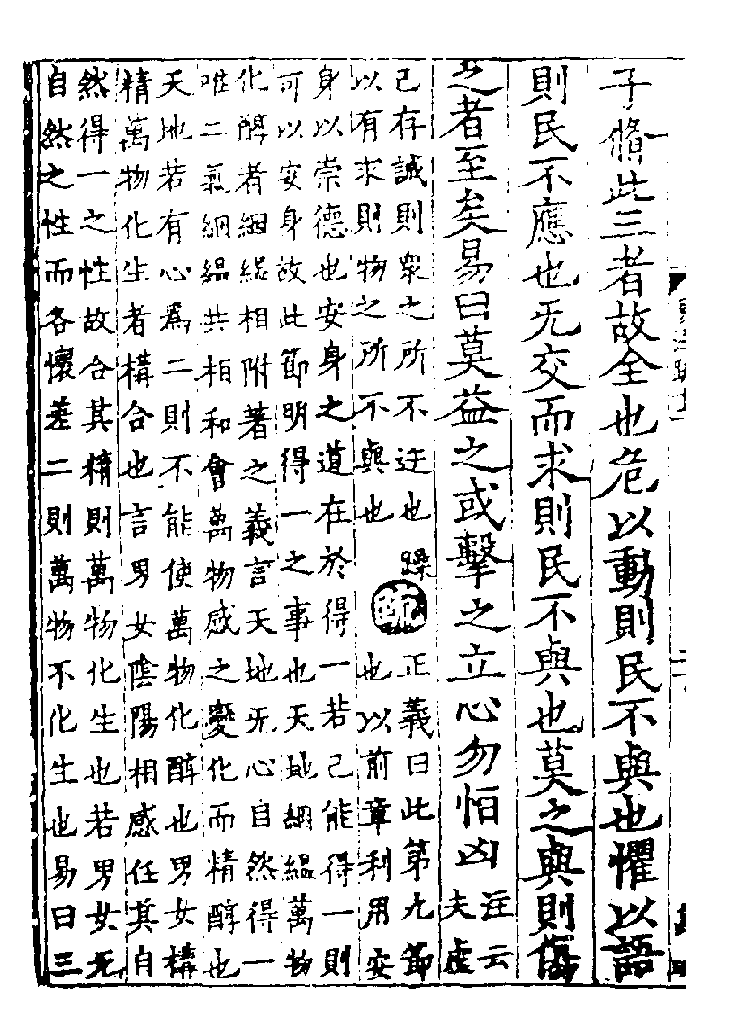 子脩此三者故全也危以動則民不與也懼以語
則民不應也无交而求則民不與也莫之與則傷
之者至矣易曰莫益之或擊之立心勿恒凶注云
夫虛
己存誠則衆之所不迕也躁疏正義曰此第九節
以有求則物之所不與也也以前章利用安
身以崇德也安身之道在於得一若己能得一則
可以安身故此節明得一之事也天地絪縕萬物
化醇者絪縕相附著之義言天地无心自然得一
唯二氣絪縕共相和會萬物感之變化而精醇也
天地若有心爲二則不能使萬物化醇也男女構
精萬物化生者構合也言男女陰陽相感任其自
然得一之性故合其精則萬物化生也若男女无
自然之性而各懷差二則萬物不化生也易曰三